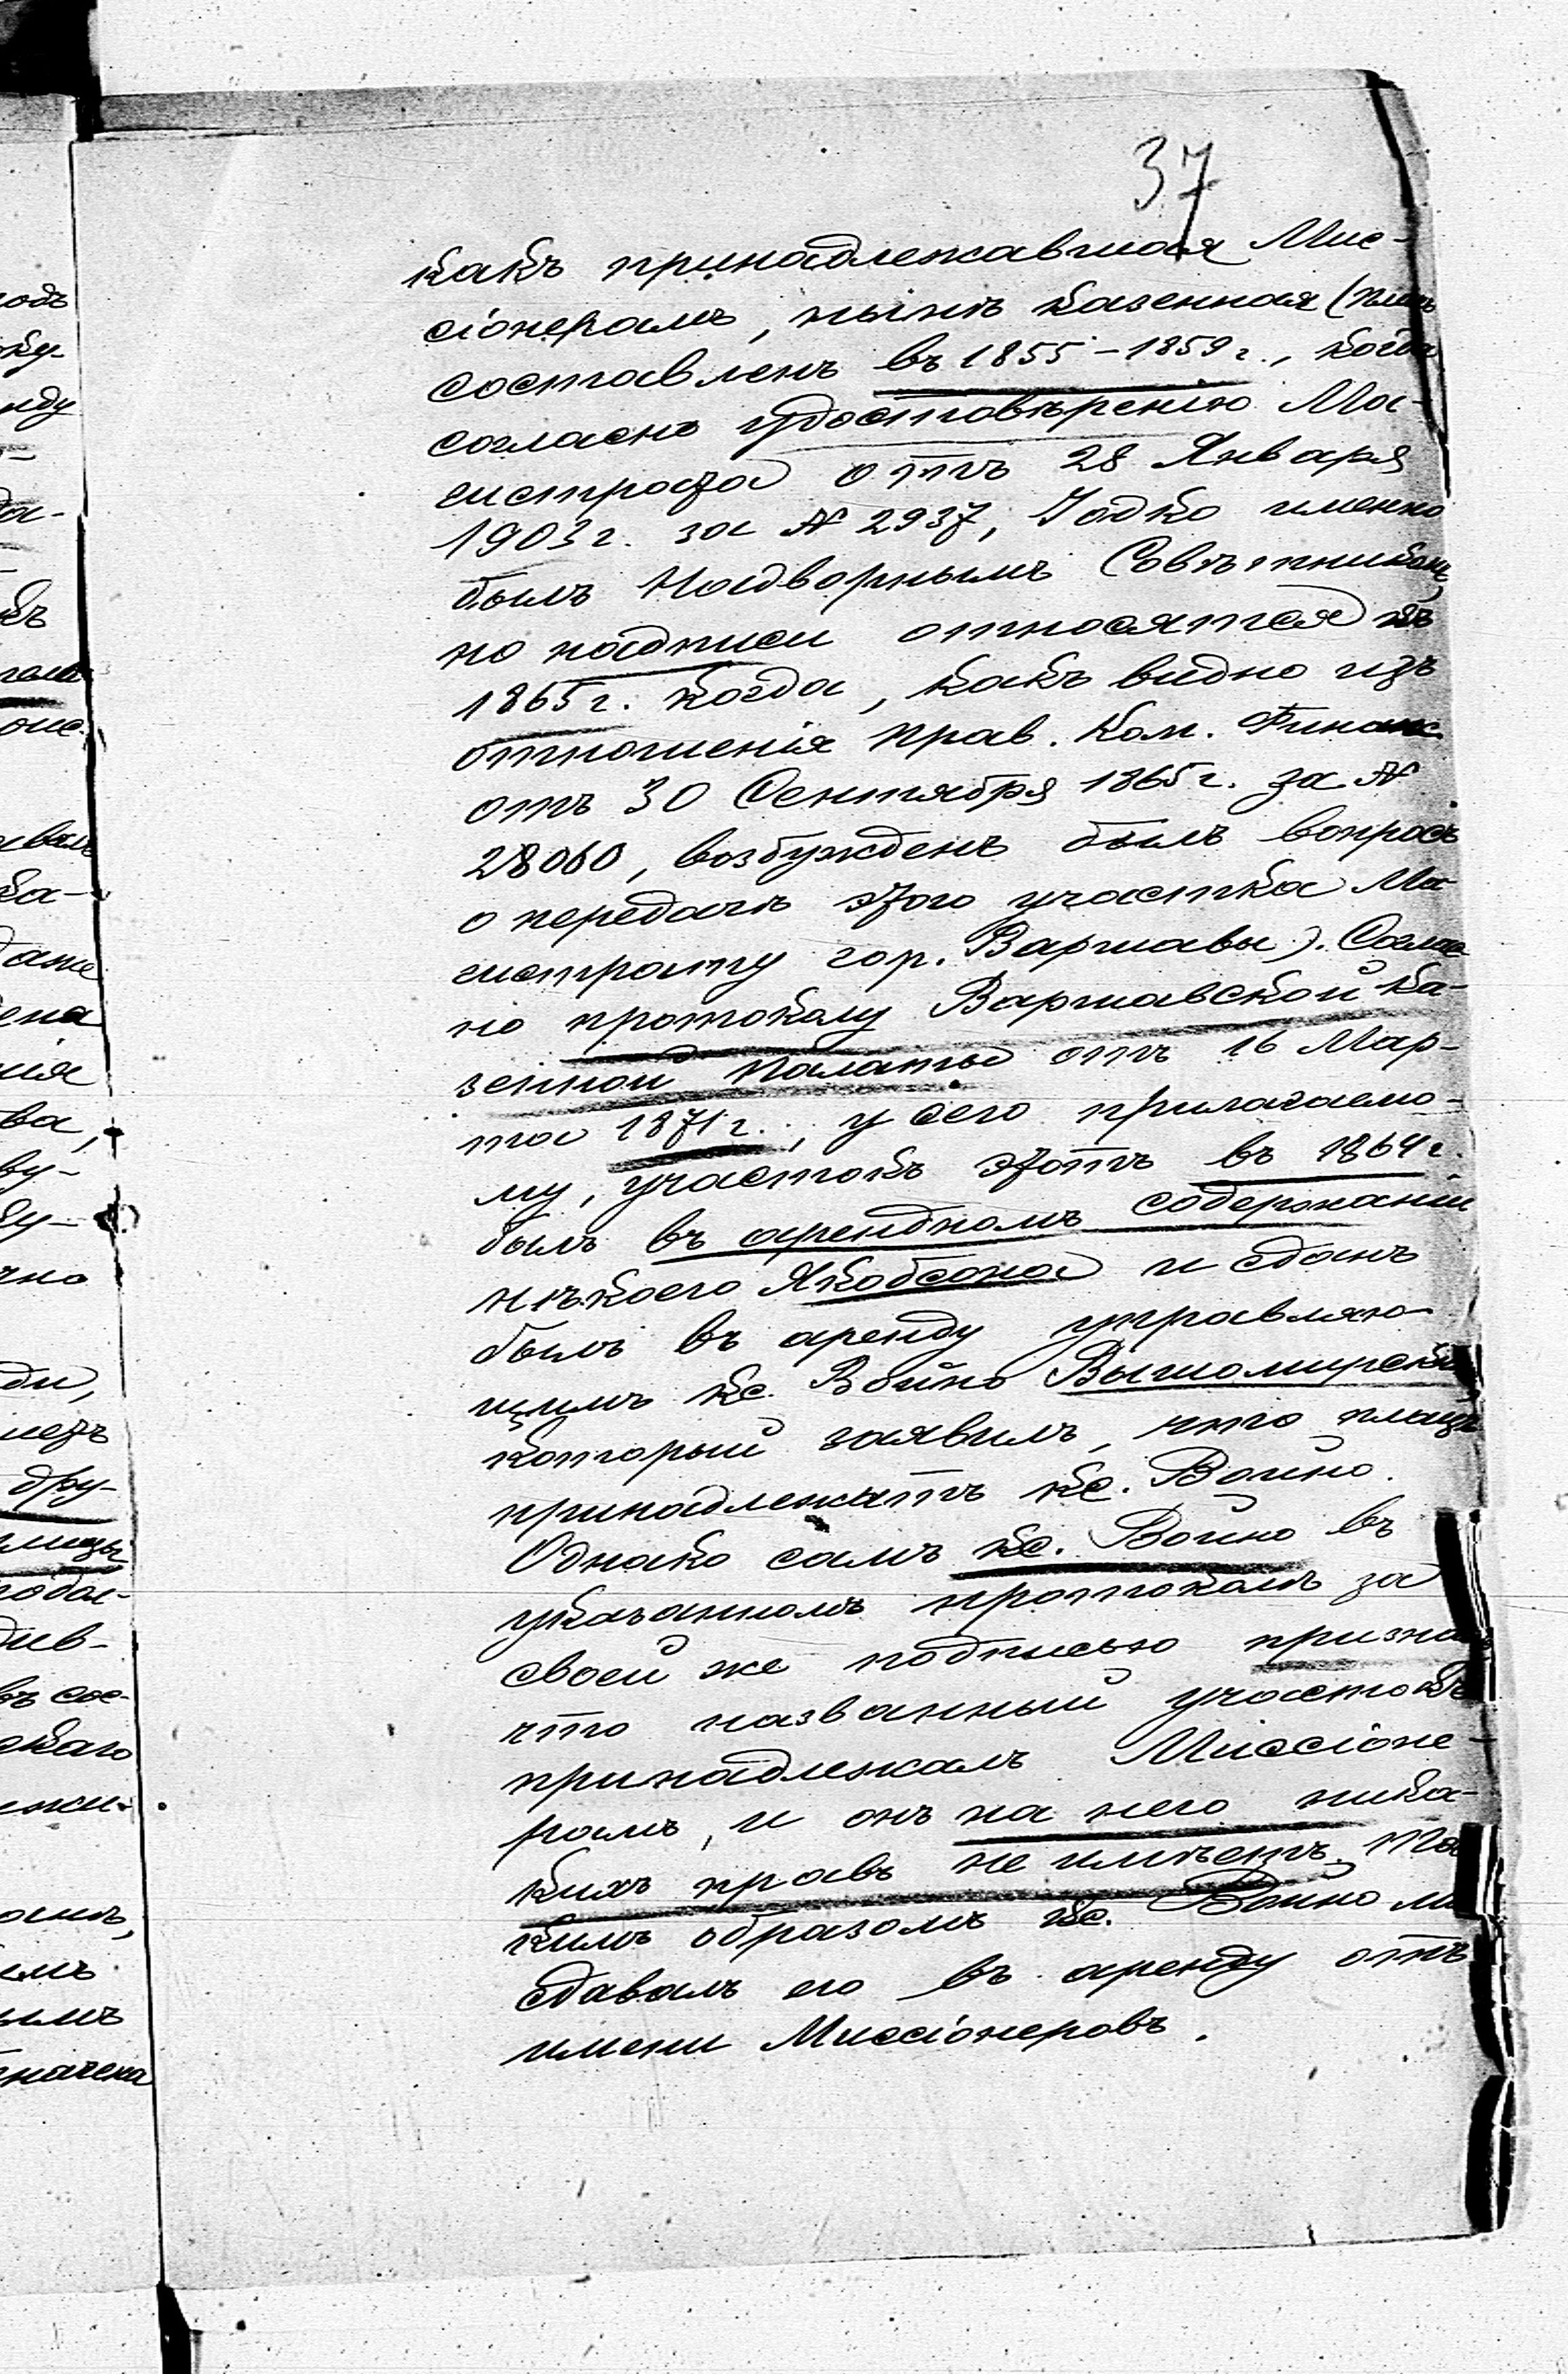 37
какъ принадлежавшая Мис-
сіонерамъ, нынѣ казенная (планъ
составленъ въ 1855-1859 г., когда
согласно удостовѣренію Ма-
гистрата отъ 28 Января
1903 г. за № 2937, Іодко именно
былъ Надворнымъ Совѣтникомъ,
но надписи относятся къ
1865 г. когда, какъ видно изъ
отношенія Прав. Ком. Финанс.
отъ 30 Сентября 1865 г. за №
28060, возбужденъ былъ вопросъ
о передачѣ этого участка Ма-
гистрату гор. Варшавы). Соглас
но протоколу Варшавской Ка-
зенной Палаты отъ 16 Мар-
та 1871 г., у сего прилагаемо-
му, участокъ этотъ въ 1864 г.
былъ въ арендномъ содержаніи
нѣкоего Якобсона и сданъ
былъ въ аренду управляю-
щимъ кс. Войно Вышомирскимъ
который заявилъ, что плацъ
принадлежитъ кс. Войно.
Однако самъ кс. Войно въ
указанномъ протоколѣ за
своей же подписью призналъ
что названный участокъ
принадлежалъ Миссіоне-
рамъ, и онъ на него ника-
кихъ правъ не имѣетъ. Та
кимъ образомъ кс. Войно
сдавалъ его въ аренду отъ
имени Миссіонеровъ.